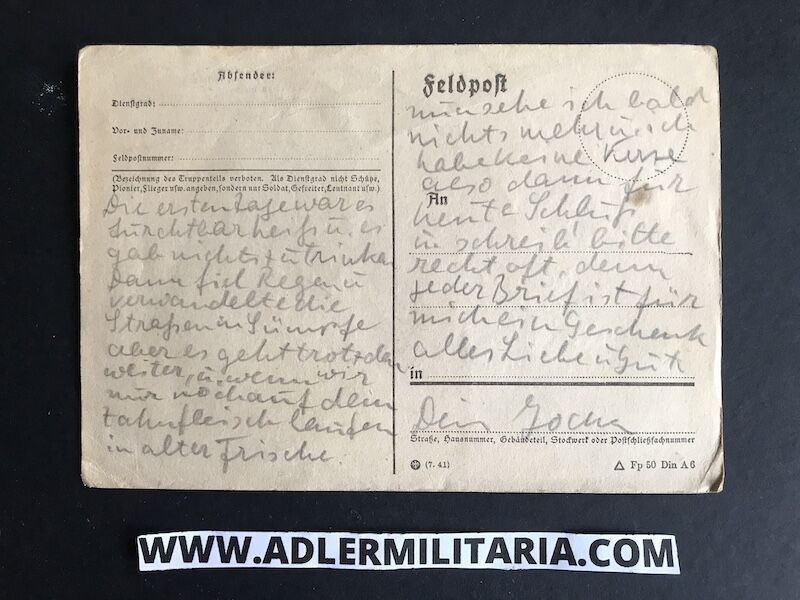 Absender:
Dienstgrad:
Vor- und Zuname:
Feldpostnummer:
(Bezeichnung des Truppenteils verboten. Als Dienstgrad nicht Schütze,
Pionier, Flieger usw. angeben, sondern nur Soldat, Gefreiter, Leutnant usw.)
Die ersten Tage war es
furchtbar heiß u. es
gab nichts zu trinken
Dann fiel Regen u
verwandelte die
Straßen in Sümpfe
aber es geht trotzdem
weiter, u. wenn wir
nur noch auf dem
Zahnfleisch laufen
in alter Frische.
Feldpost
nun sehe ich bald
nichts mehr u ich
habe keine Kerze
also dann für
An
heute Schluß
u schreib bitte
recht oft, denn
jeder Brief ist für
mich ein Geschenk
alles Liebe u Gute
in
Dein
Straße, Hausnummer, Gebäudeteil, Stockwerk oder Postschließfachnummer
(7. 41)
Fp 50 Din A 6
WWW.ADLERMILITARIA.COM